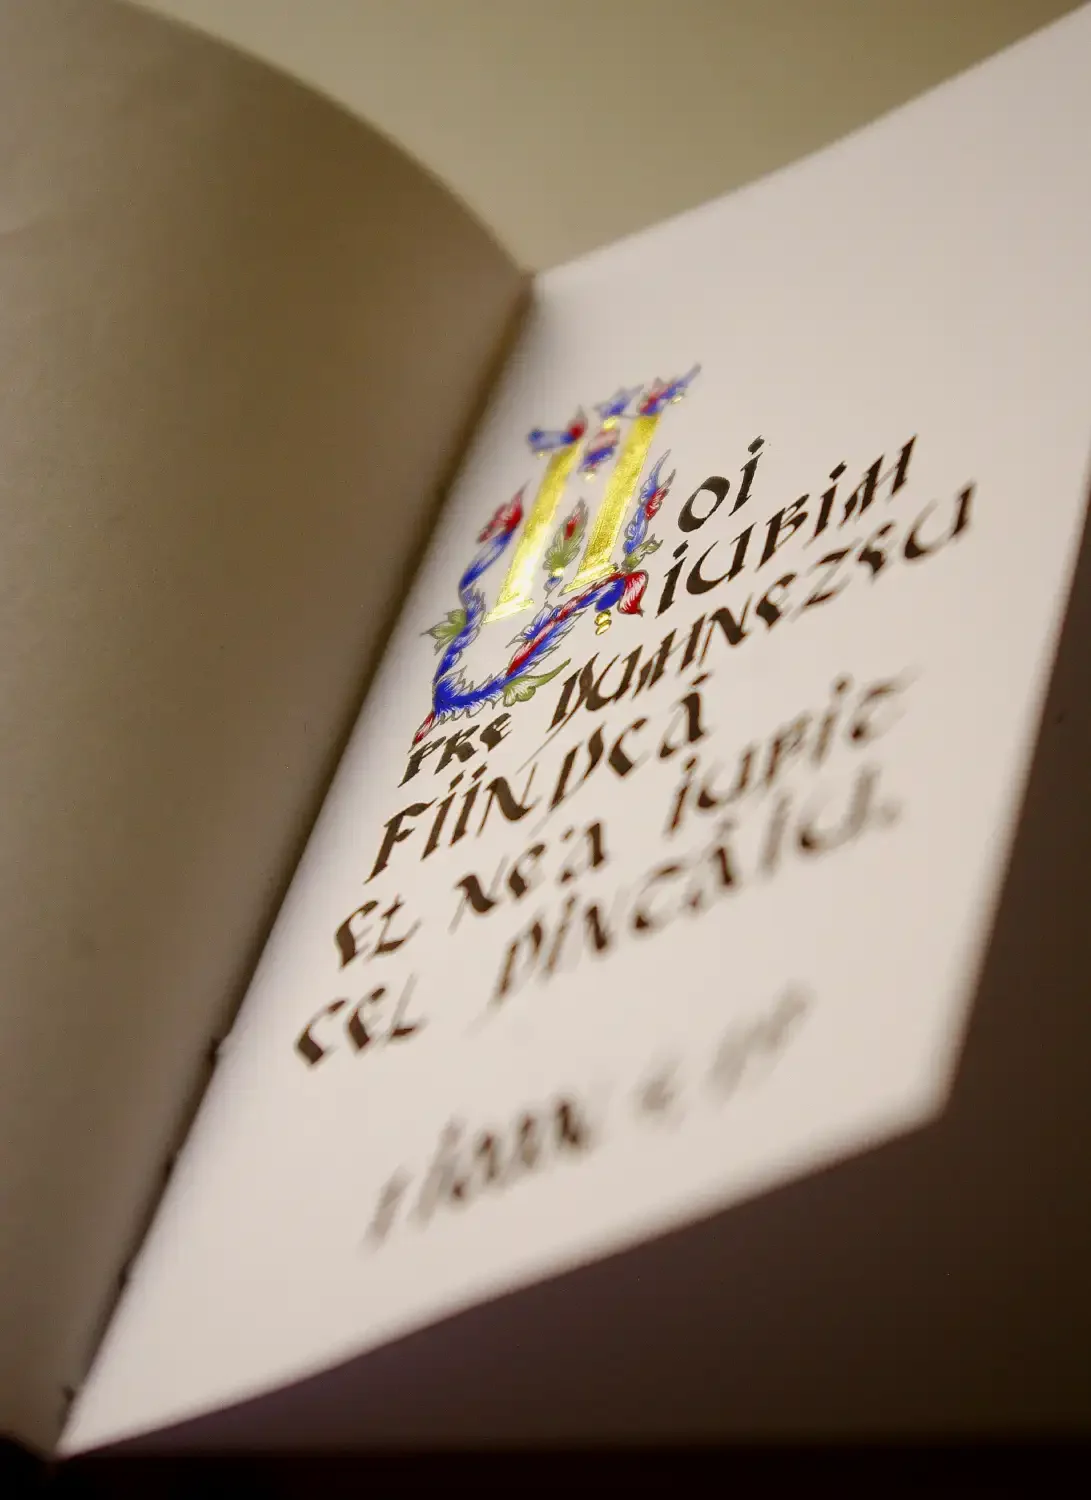 NOI
IUBIM
PRE DUMNEZEU
FIINDCĂ
EL NE'A IUBIT
CEL DINTÂIU.
I IOAN 4